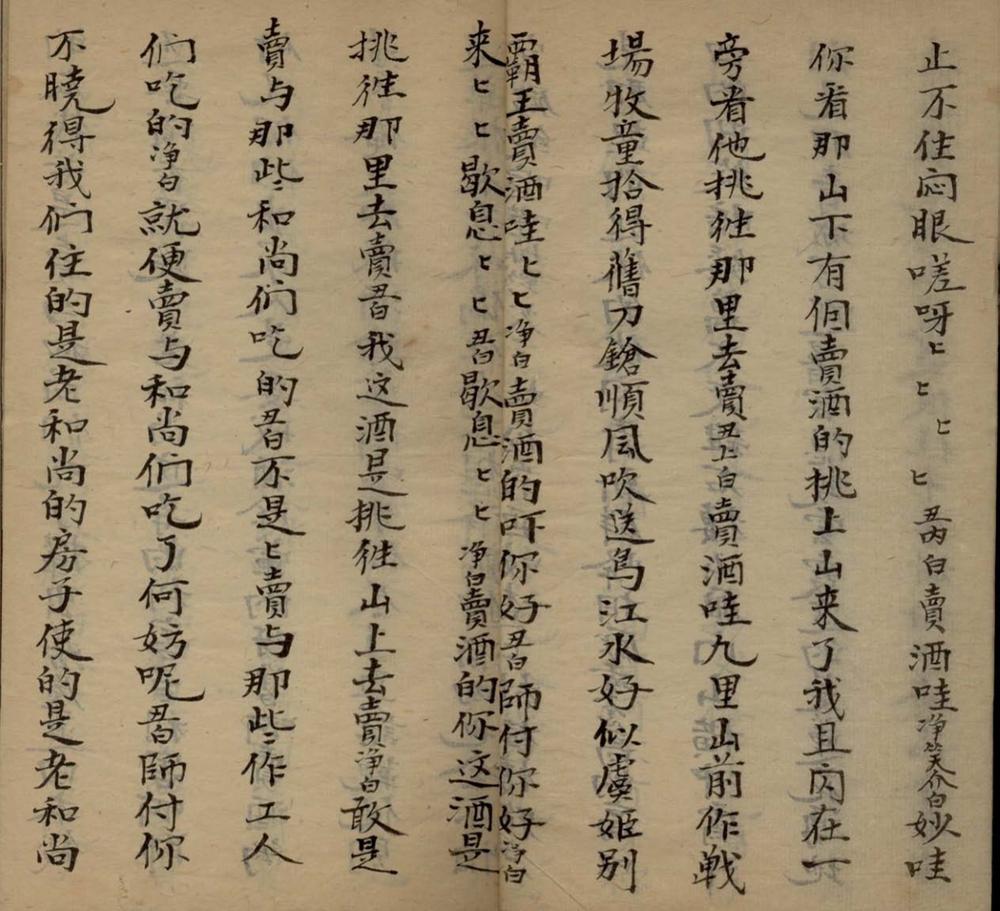 止不住闷眼嗟呀〻〻〻〻丑内白賣酒哇净笑介白妙哇
你看那山下有個賣酒的挑上山来了我且闪在一
旁看他挑徃那里去賣丑上白賣酒哇九里山前作戰
場牧童拾得舊刀鎗順風吹送烏江水好似虞姬别
覇王賣酒哇〻〻净白賣酒的吓你好丑白師付你好净白
来〻〻歇息〻〻丑白歇息〻〻净白賣酒的你这酒是
挑徃那里去賣丑白我这酒是挑徃山上去賣净白敢是
賣与那些和尚们吃的丑白不是〻賣与那些作工人
们吃的净白就便賣与和尚们吃了何妨呢丑白師付你
不曉得我们住的是老和尚的房子使的是老和尚